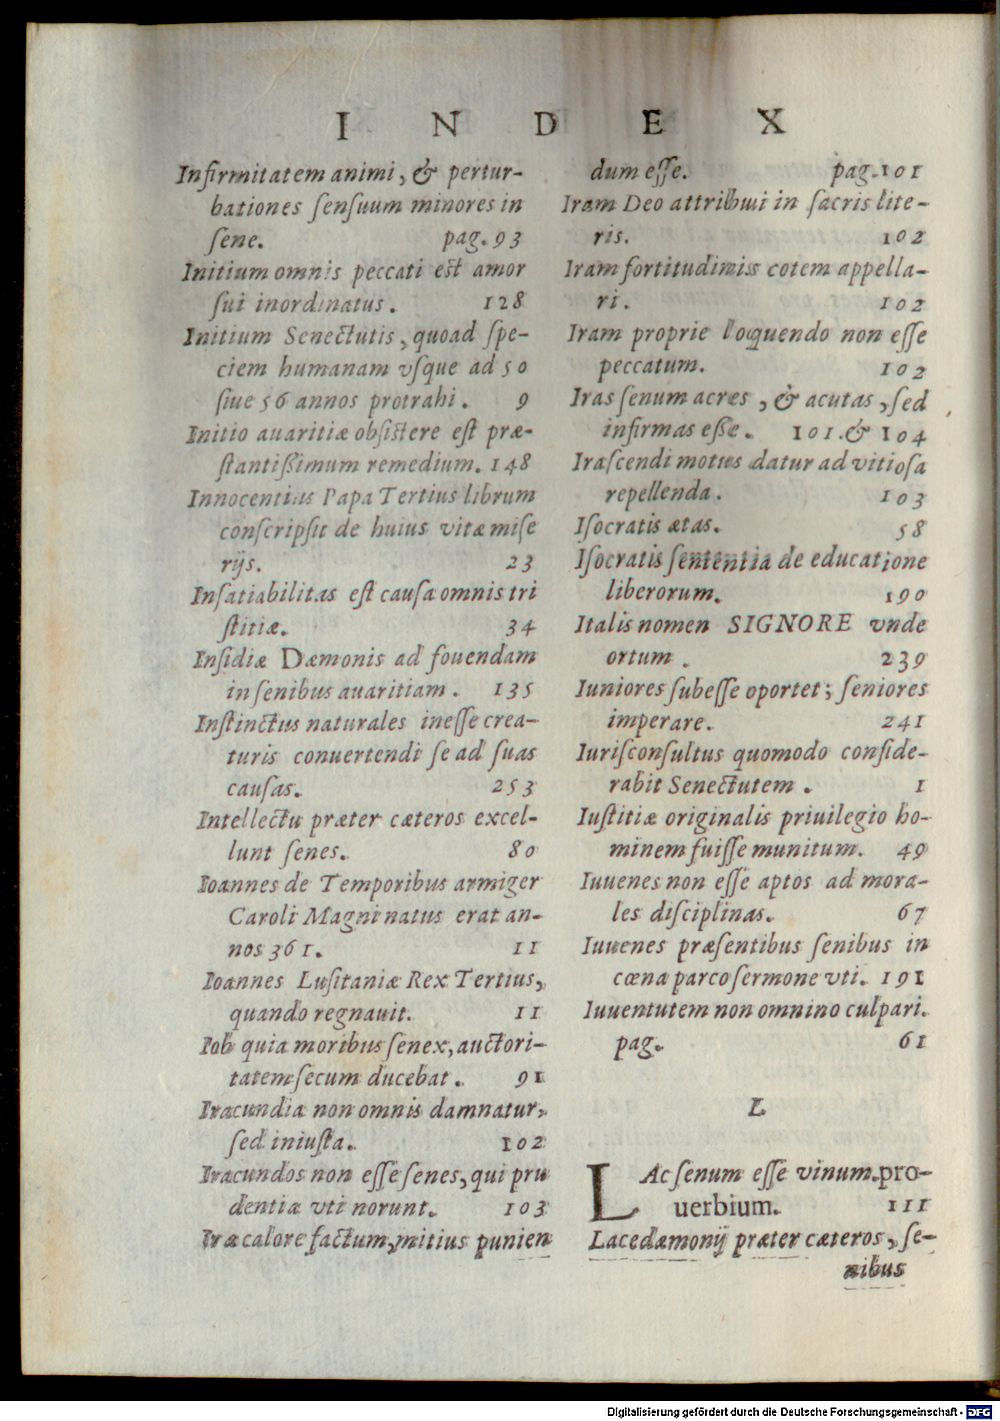 INDEX
Infirmitatem animi, & pertur-
bationes sensuum minores in
sene. pag. 93
Initium omnis peccati est amor
sui inordinatus. 128
Initium Senectutis, quoad spe-
ciem humanam vsque ad 50
siue 56 annos protrahi. 9
Initio auaritiæ obsistere est præ-
stantißimum remedium. 148
Innocentius Papa Tertius librum
conscripsit de huius vitæ mise
rijs. 23
Insatiabilitas est causa omnis tri
stitiæ. 34
Insidiæ Dæmonis ad fouendam
in senibus auaritiam. 135
Instinctus naturales inesse crea-
turis conuertendi se ad suas
causas. 253
Intellectu præter cæteros excel-
lunt senes. 80
Ioannes de Temporibus armiger
Caroli Magni natus erat an-
nos 361. 11
Ioannes Lusitaniæ Rex Tertius,
quando regnauit. 11
Iob quia moribus senex, auctori-
tatem secum ducebat. 91
Iracundia non omnis damnatur,
sed iniusta. 102
Iracundos non esse senes, qui pru
dentia vti norunt. 103
Iræ calore factum, mitius punien
dum esse. pag. 101
Iram Deo attribui in sacris lite-
ris. 102
Iram fortitudinis cotem appella-
ri. 102
Iram proprie loquendo non esse
peccatum. 102
Iras senum acres, & acutas, sed
infirmas eße. 101. & 104
Irascendi motus datur ad vitiosa
repellenda. 103
Isocratis ætas. 58
Isocratis sententia de educatione
liberorum. 190
Italis nomen SIGNORE vnde
ortum. 239
Iuniores subesse oportet; seniores
imperare. 241
Iurisconsultus quomodo conside-
rabit Senectutem. 1
Iustitiæ originalis priuilegio ho-
minem fuisse munitum. 49
Iuuenes non esse aptos ad mora-
les disciplinas. 67
Iuuenes præsentibus senibus in
cœna parco sermone vti. 191
Iuuentutem non omnino culpari.
pag. 61
L
LAc senum esse vinum. pro-
uerbium. 111
Lacedæmonij præter cæteros, se-
nibus
Digitalisierung gefördert durch die Deutsche Forschungsgemeinschaft - DFG